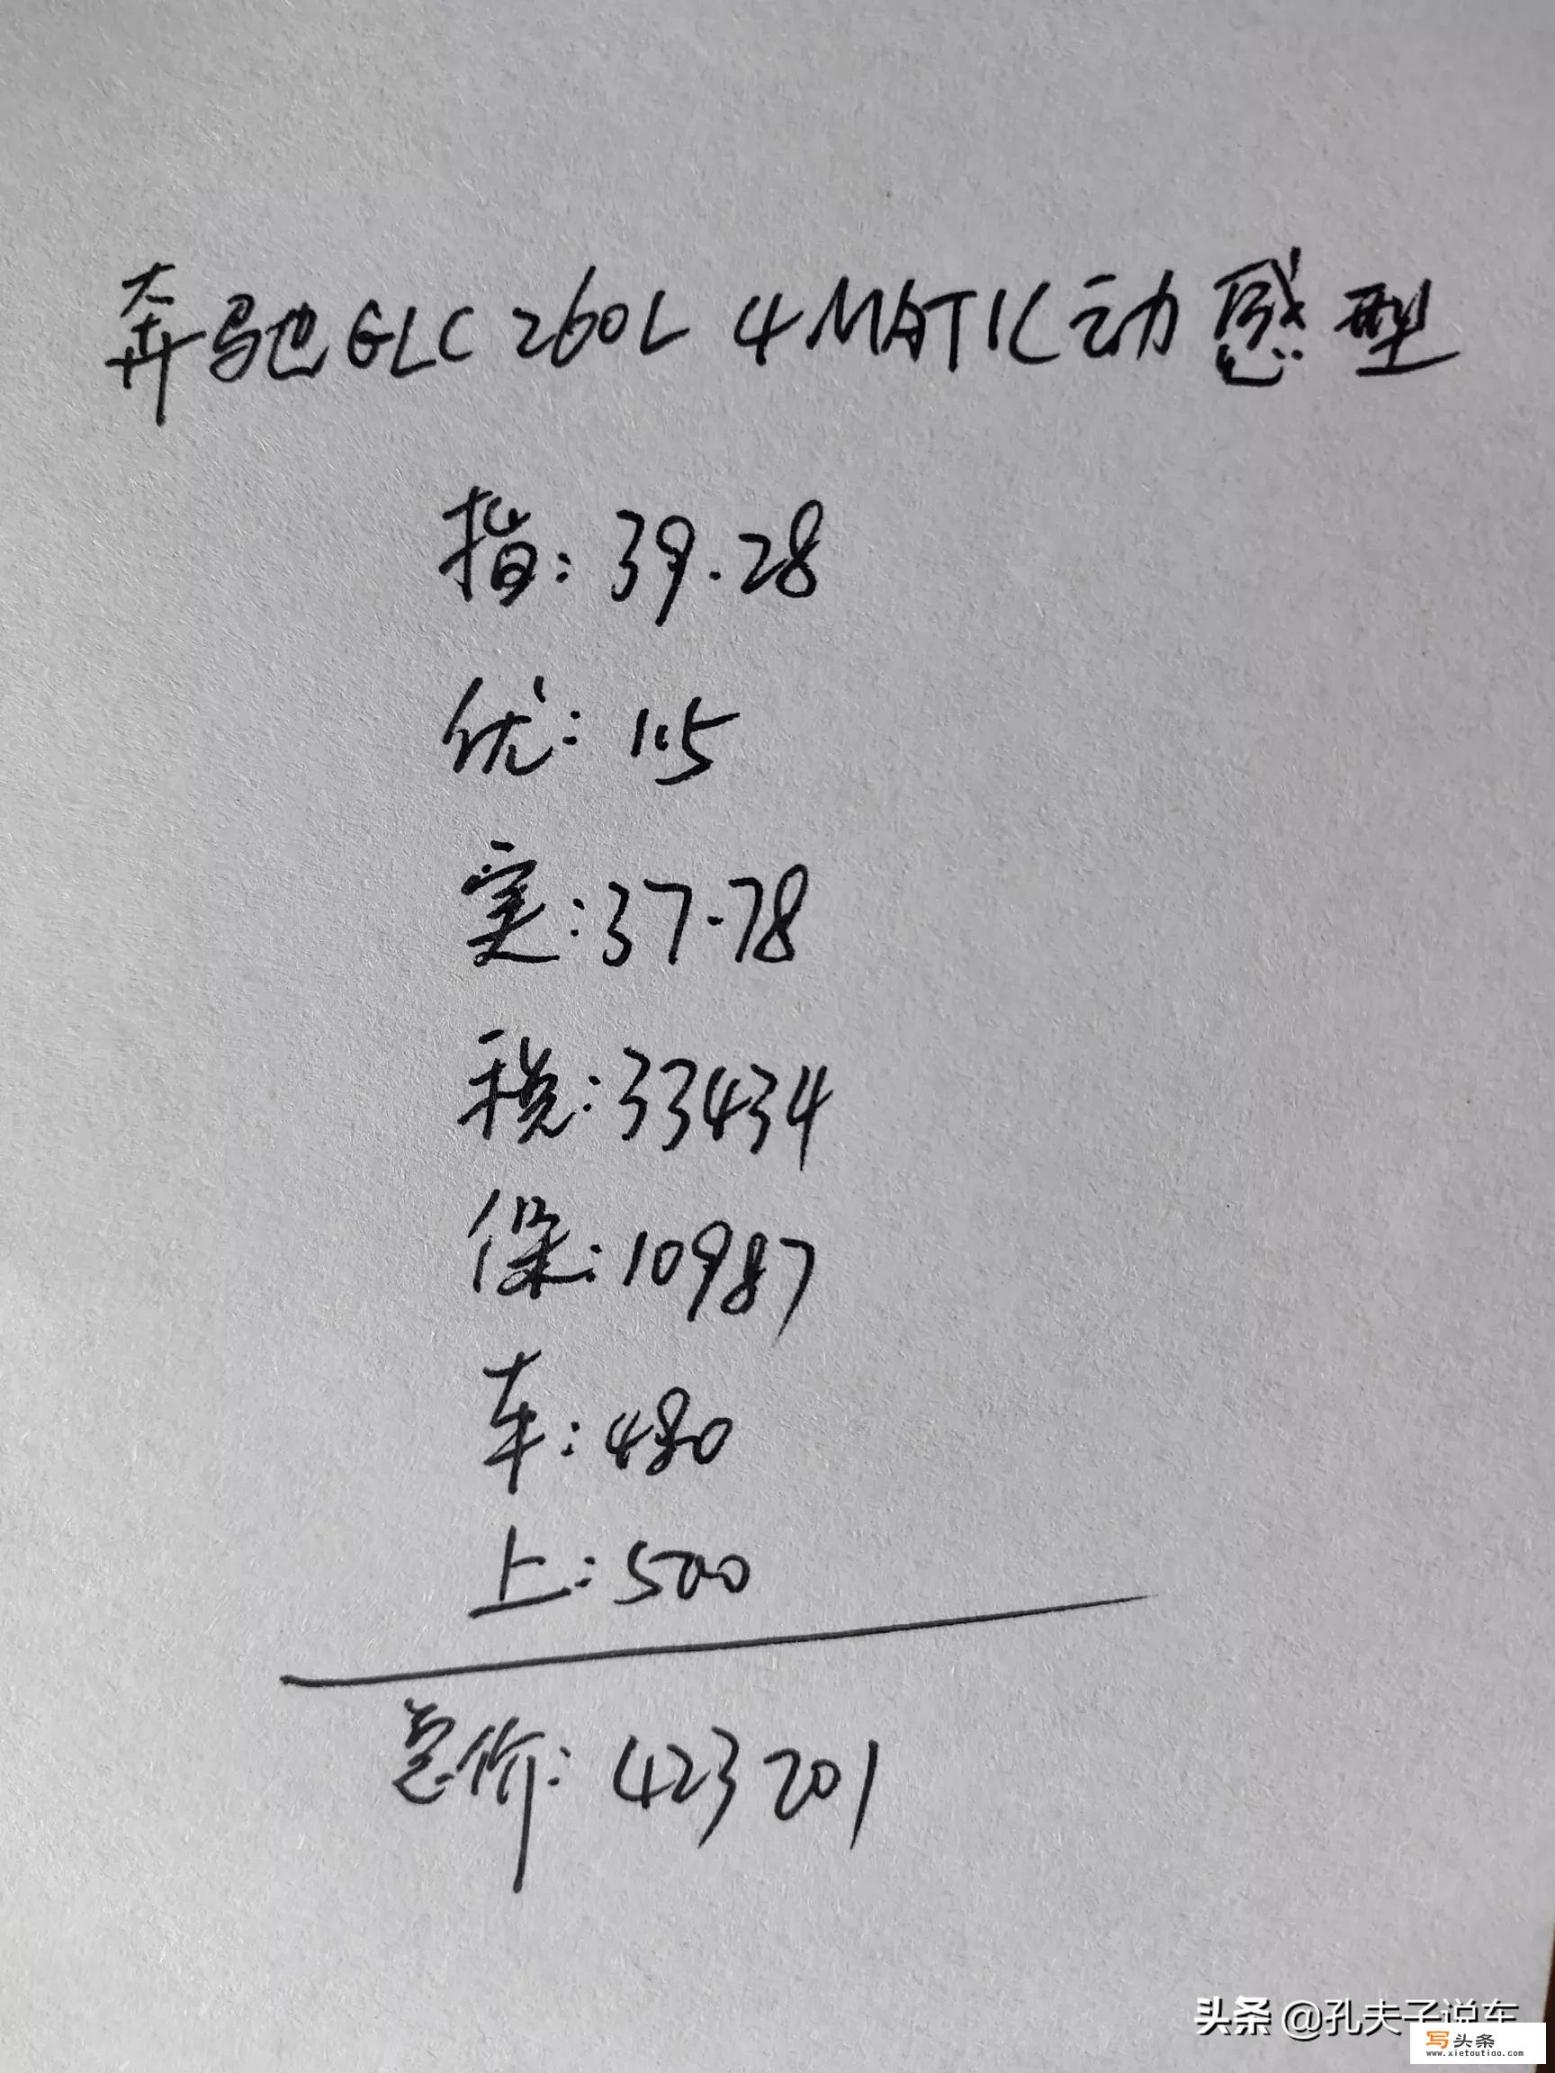 奔驰GLC 260L 4MATIC动感型
指：39.28
优：1.5
实：37.78
税：33434
保：10987
车：480
上：500
总价：423201
头条 @孔夫子说车
写头条
www.xietoutiao.com